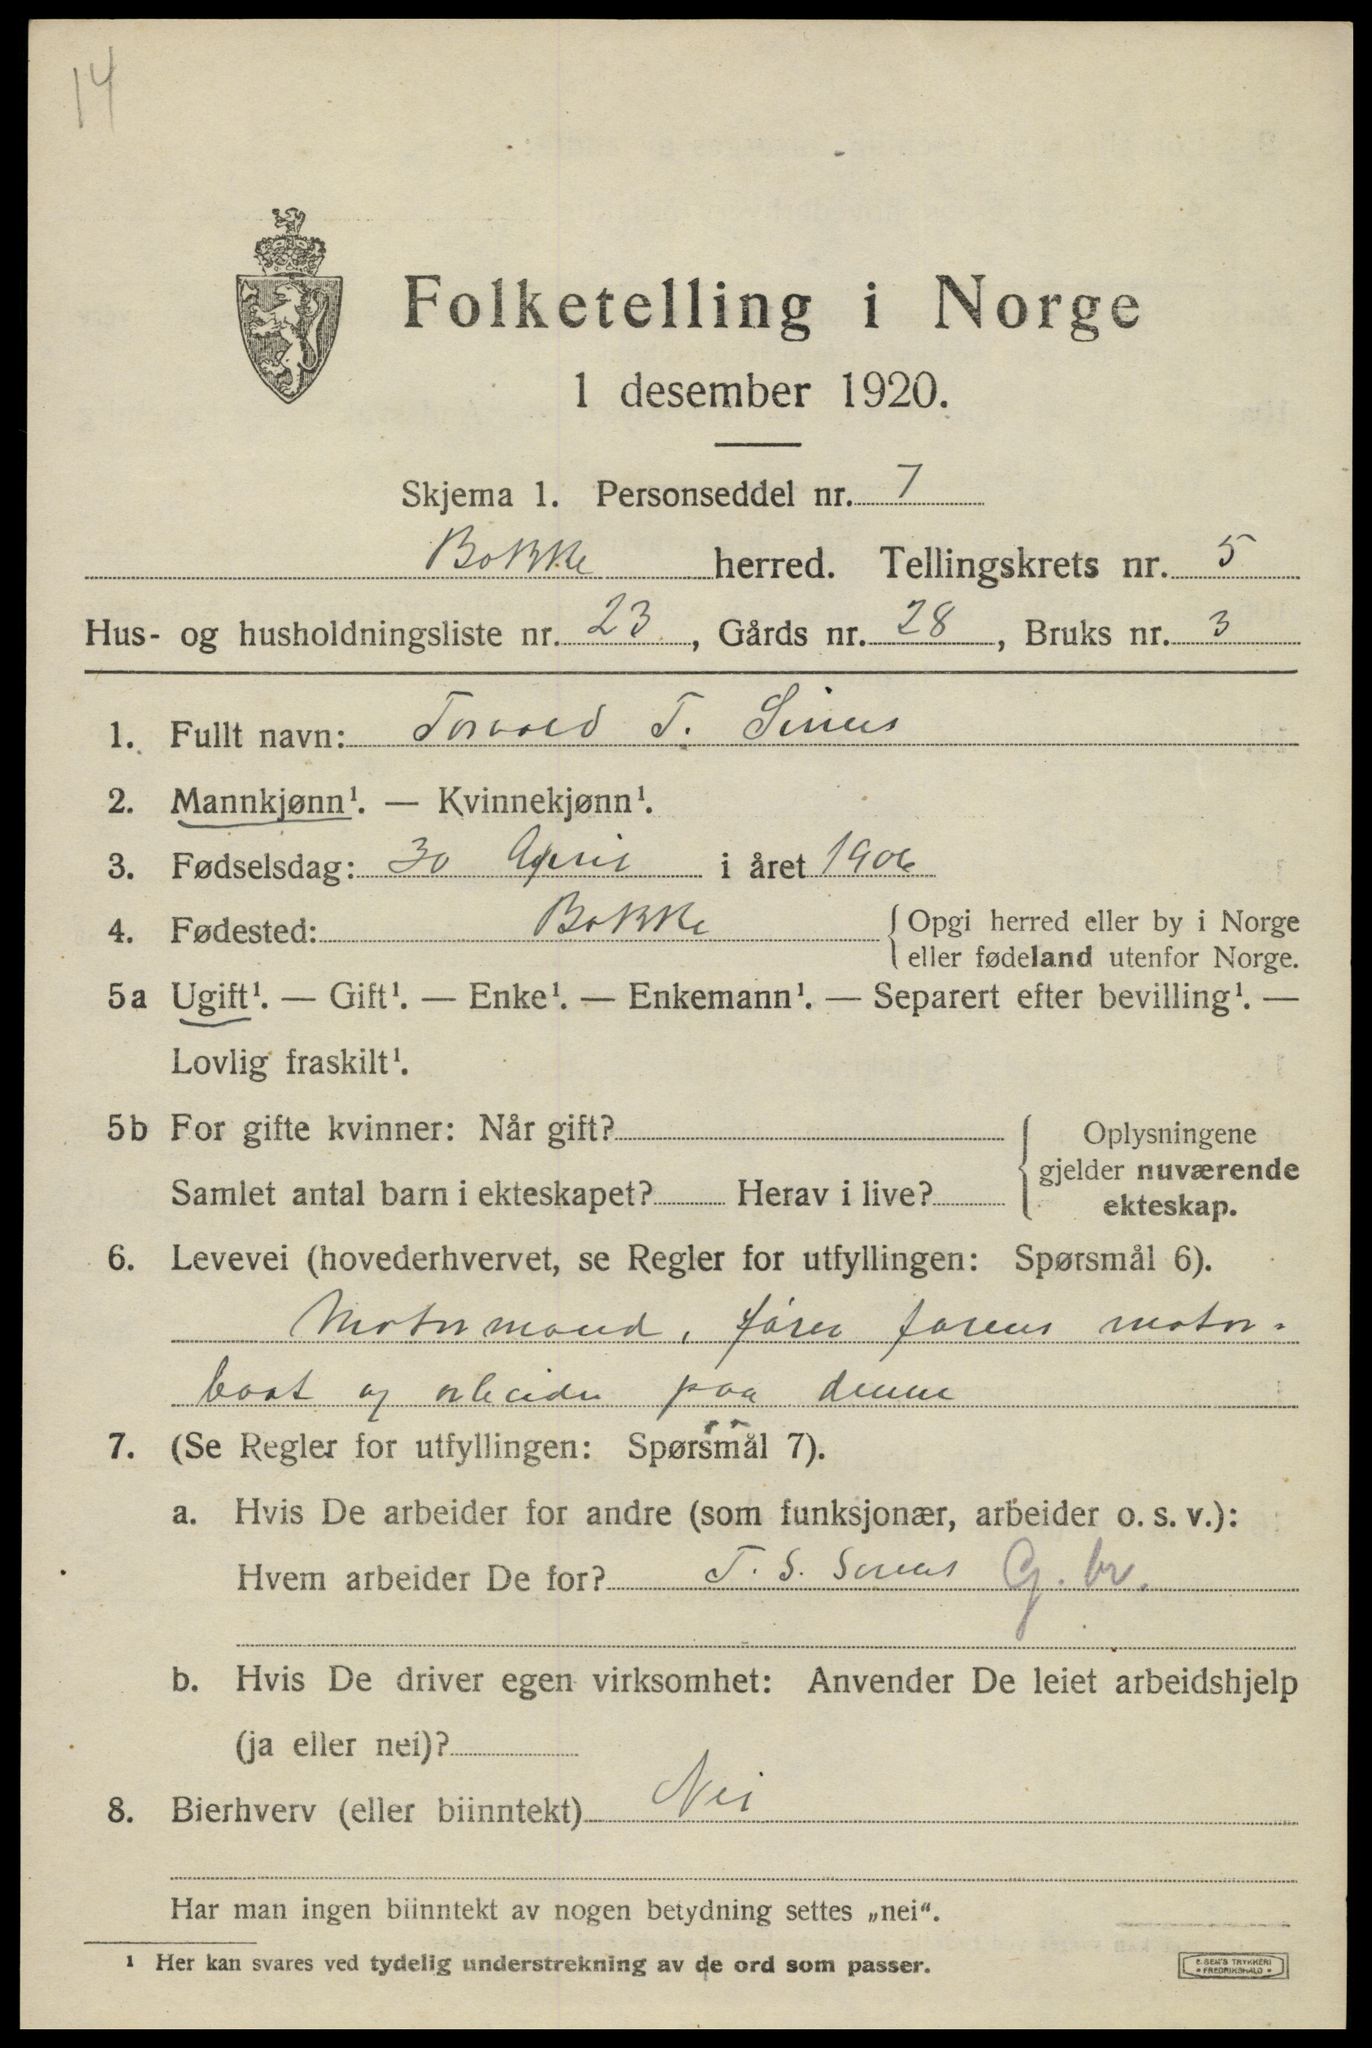 14
Folketelling i Norge
1 desember 1920.
Skjema 1. Personseddel nr. 7
Bokke herred. Tellingskrets nr. 5
Hus- og husholdningsliste nr. 23, Gårds nr. 28, Bruks nr. 3
1. Fullt navn: Torvald T.
2. Mannkjønn¹. — Kvinnekjønn¹.
3. Fødselsdag: 30 April i året 1906
4. Fødested: Bokke { Opgi herred eller by i Norge
eller fødeland utenfor Norge.
5a Ugift¹. — Gift¹. — Enke¹. — Enkemann¹. — Separert efter bevilling¹. —
Lovlig fraskilt¹.
5b For gifte kvinner: Når gift? { Oplysningene
gjelder nuværende
Samlet antal barn i ekteskapet? Herav i live? ekteskap.
6. Levevei (hovederhvervet, se Regler for utfyllingen: Spørsmål 6).
Motormand, fører farens motor-
baat og arbeider paa denne
7. (Se Regler for utfyllingen: Spørsmål 7).
a. Hvis De arbeider for andre (som funksjonær, arbeider o. s. v.):
Hvem arbeider De for? T. S. G. br.
b. Hvis De driver egen virksomhet: Anvender De leiet arbeidshjelp
(ja eller nei)?
8. Bierhverv (eller biinntekt) Nei
Har man ingen biinntekt av nogen betydning settes „nei“.
¹ Her kan svares ved tydelig understrekning av de ord som passer.
E. SEM'S TRYKKERI
• FREDRIKSHALD •